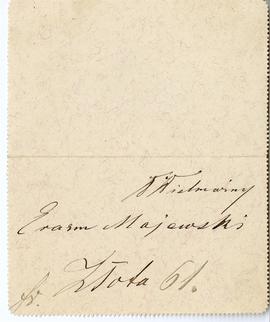 Wielmożny
Erazm Majewski
Złota 61.
fr.